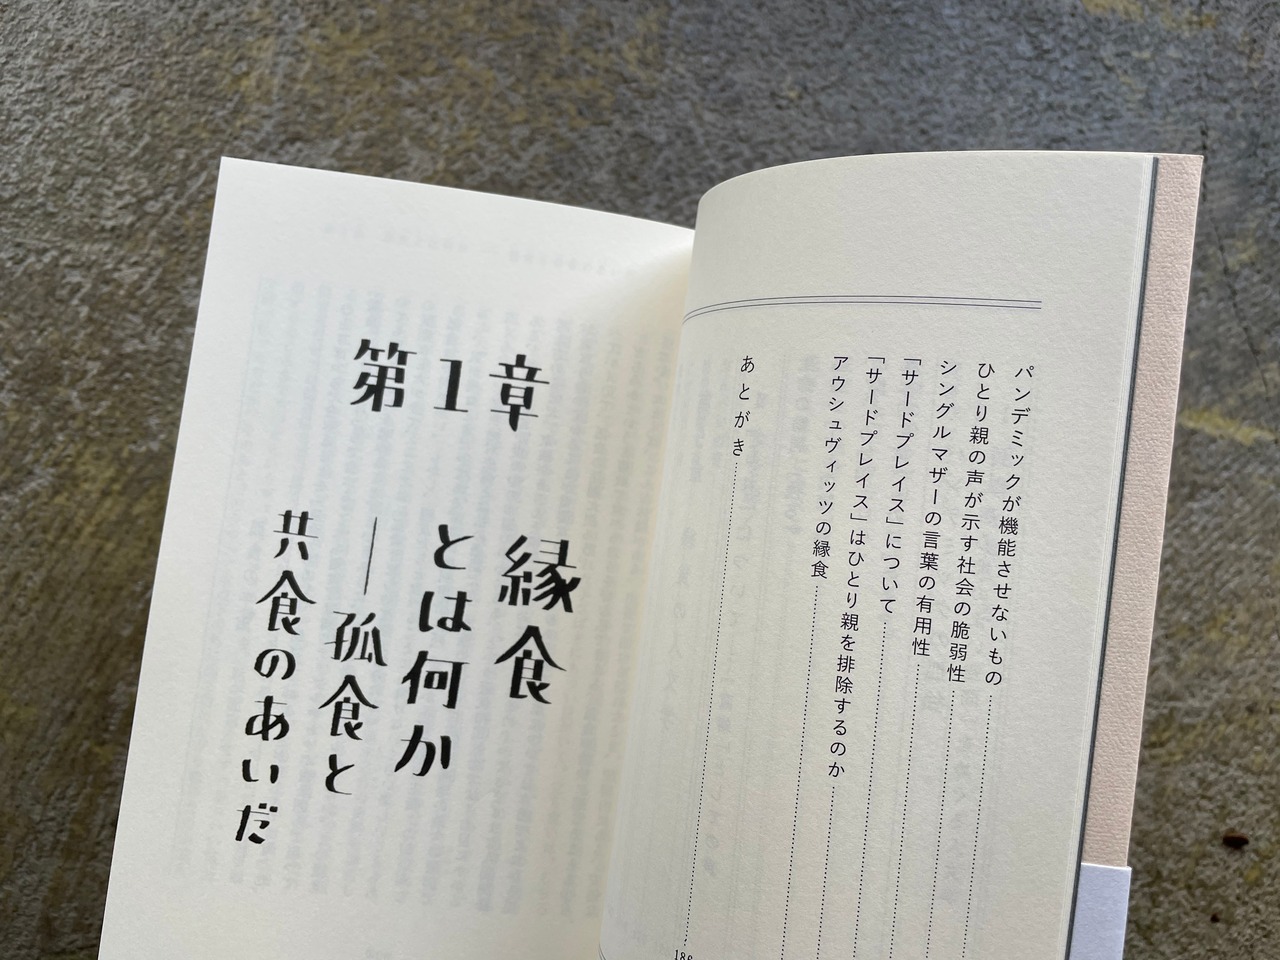 パンデミックが機能させないもの
ひとり親の声が示す社会の脆弱性
シングルマザーの言葉の有用性
「サードプレイス」について
「サードプレイス」はひとり親を排除するのか
アウシュヴィッツの縁食
あとがき
第1章
縁食
とは何か
―孤食と
共食のあいだ